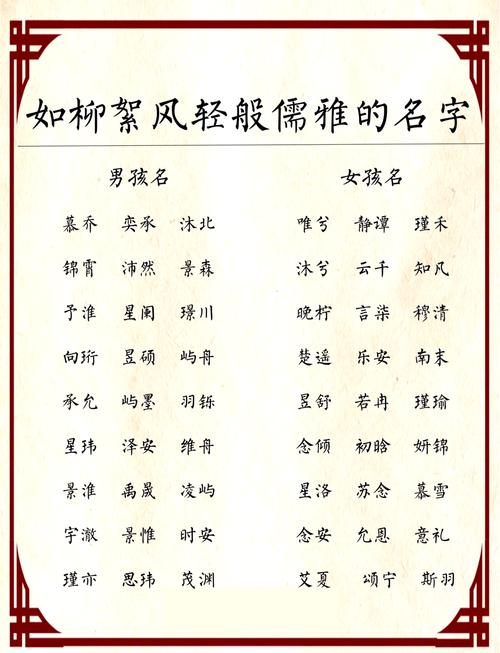 如柳絮风轻般儒雅的名字
男孩名 女孩名
慕乔 奕承 沐北 唯兮 静谭 瑾禾
锦霄 沛然 景森 沐兮 云千 知凡
予淮 星阑 璟川 晚柠 言柒 穆清
向珩 昱硕 屿舟 楚遥 乐安 南末
承允 屿墨 羽铄 昱舒 若冉 瑾瑜
星玮 泽安 维舟 念倾 初晗 妍锦
景淮 禹晟 凌屿 星洛 苏念 慕雪
宇澈 景惟 时安 念安 允恩 意礼
瑾亦 思玮 茂渊 艾夏 颂宁 斯羽